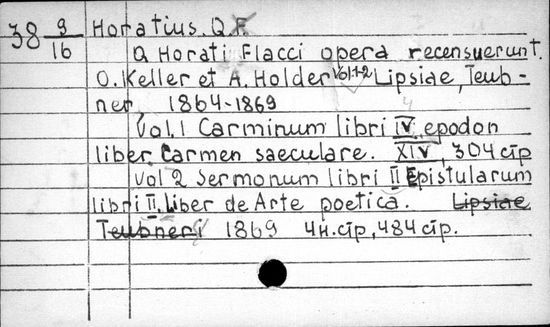 38 9/16 Horatius. Q F.
Q Horati Flacci opera recensuerunt.
O. Keller et A. Holder Vol 1-2 Lipsiae, Teub-
ner, 1864-1869
Vol. 1 Carminum libri IV epodon
liber Carmen saeculare. XIV, 304 стр
Vol 2 Sermonum libri II Epistularum
libri II, Liber de Arte poetica. Lipsiae
Teubneri 1869 4н. стр, 484 стр.